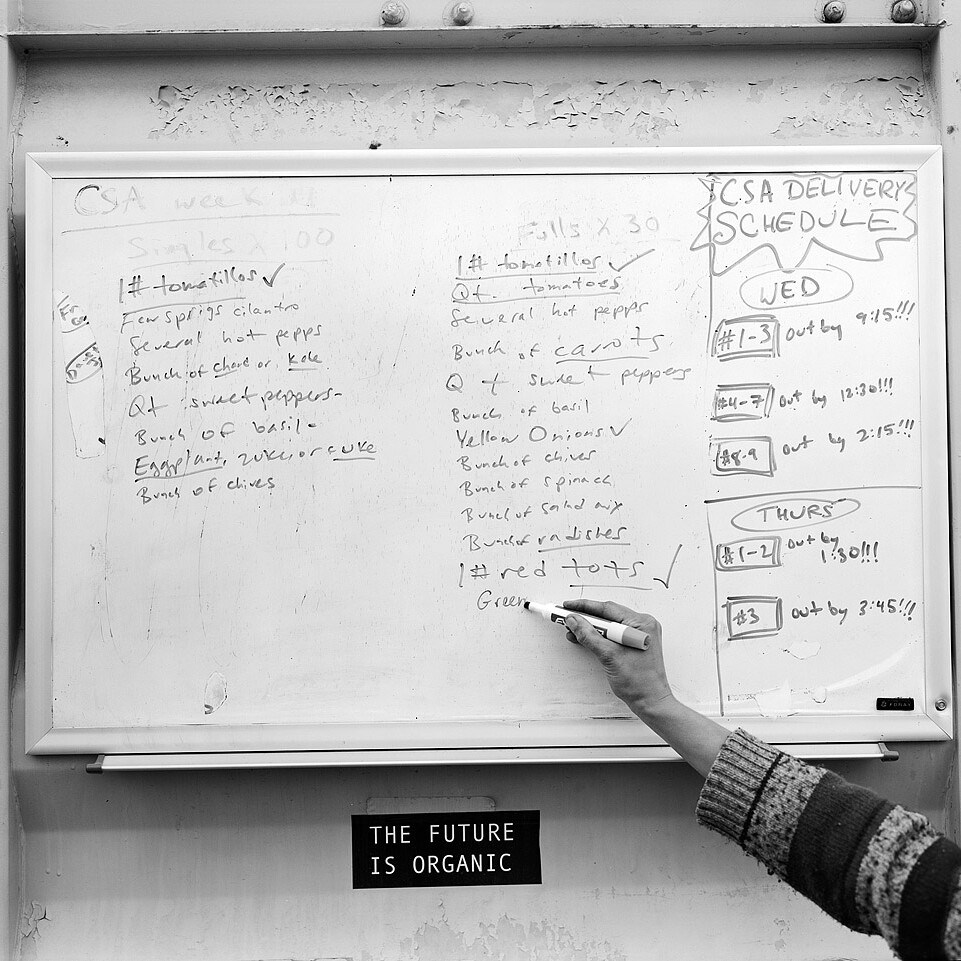 CSA week
Singles x 100
1# tomatillos ✓
Few sprigs cilantro
Several hot pepps
Bunch of chard or kale
Qt sweet peppers
Bunch of basil
Eggplant, zuke, or cuke
Bunch of chives
Fulls x 30
1# tomatillos ✓
Qt. tomatoes
Several hot pepps
Bunch of carrots
Qt sweet peppers
Bunch of basil
Yellow Onions ✓
Bunch of chives
Bunch of spinach
Bunch of salad mix
Bunch of radishes
1# red tots ✓
Green
CSA DELIVERY
SCHEDULE
WED
#1-3 out by 9:15!!!
#4-7 out by 12:30!!!
#8-9 out by 2:15!!!
THURS
#1-2 out by
1:30!!!
#3 out by 3:45!!!
FORAY
THE FUTURE
IS ORGANIC